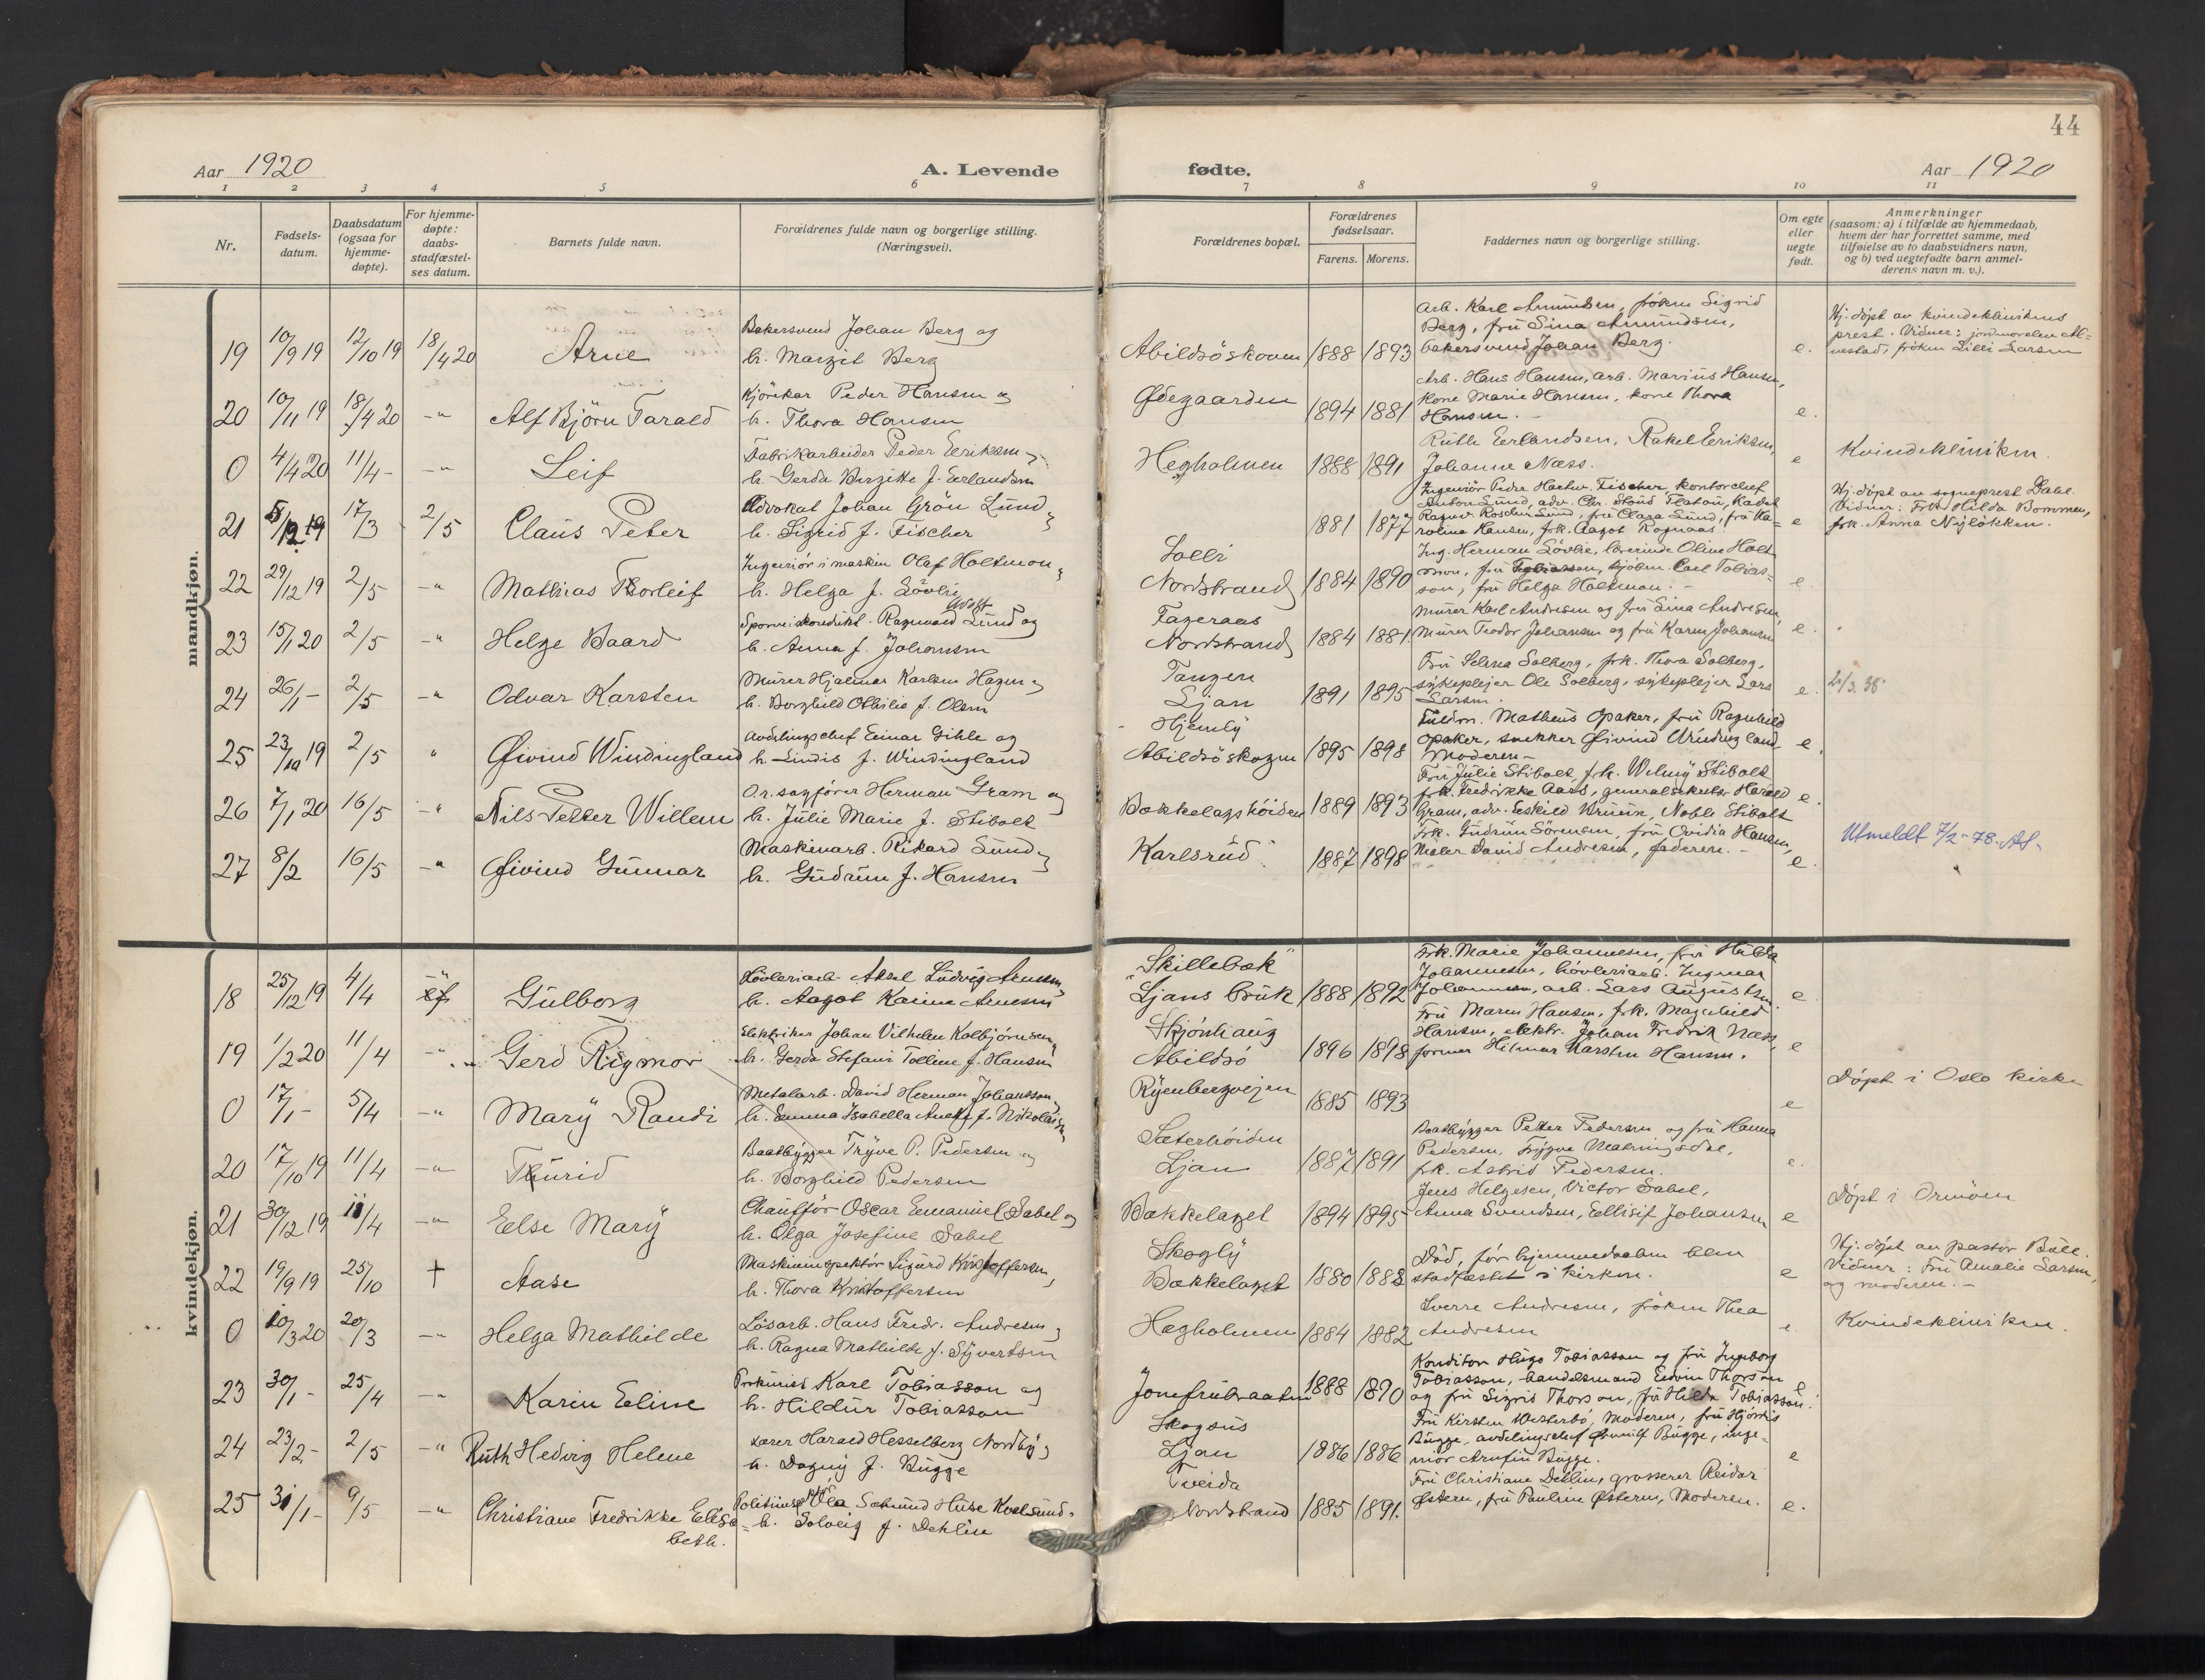 44
Aar 1920
A. Levende
fødte.
Aar 1920
1 2 3 4 5 6 7 8 9 10 11
Nr.
Fødsels-
datum.
Daabsdatum
(ogsaa for
hjemme-
døpte).
For hjemme-
døpte:
daabs-
stadfæstel-
ses datum.
Barnets fulde navn.
Forældrenes fulde navn og borgerlige stilling.
(Næringsvei).
Forældrenes bopæl.
Forældrenes
fødselsaar.
Farens. Morens.
Faddernes navn og borgerlige stilling.
Om egte
eller
uegte
født.
Anmerkninger
(saasom: a) i tilfælde av hjemmedaab,
hvem der har forrettet samme, med
tilføielse av to daabsvidners navn,
og b) ved uegtefødte barn anmel-
derens navn m. v.).
mandkjøn.
19 10/9 19 12/10 19 18/4 20 Arne
Bakersvend Johan Berg og
h. Margit Berg
Abildsöskoven 1888 1893
Arb. Karl Amundsen, fröken Sigrid
Berg, fru Sina Amundsen,
bakersvend Johan Berg.
e.
Hj. döpt av kvindeklinikens
prest. Vidner: jordmoreleven
fröken Lilli Larsen
20 10/11 19 18/4 20 -"- Alf Björn Tarald
Kjörekar Peder Hansen og
h. Thora Hansen
Ødegaarden 1894 1881
Arb. Hans Hansen, arb. Marius Hansen,
kone Marie Hansen, kone Thora
Hansen. -
e.
0 4/4 20 11/4 - -"- Leif
Fabrikarbeider Peder Eriksen
h. Gerda Birgitte f. Erlandsen
Hegholmen 1888 1891
Ruth Erlandsen, Rakel Eriksen,
Johanne Næss.
e
Kvindekliniken.
21 5/12 19 17/3 2/5 Claus Peter
Advokat Johan Grön Lund
h. Sigrid f. Fischer
Solli 1881 1877
Ingeniör Peder Hartv. Fischer, kontorchef
Anton Lund, adv. Chr. Stoud Platou, Kadet
Ragnv. Roscher Lund, fru Clara Lund, fru Ka=
rolina Hansen, frk. Aagot Rognaas.
e
Hj. döpt av sogneprest Dahl.
Vidner: Frk. Hilda Bommen,
frk. Anna Nylökken.
22 29/12 19 2/5 -"- Mathias Thorleif
Ingeniör i marinen Olaf Holtmon
h. Helga f. Lövlie
Nordstrand 1884 1890
Ing. Herman Lövlie, lærerinde Oline Holt
mon, fru Tobiassen, Carl Tobias=
son, fru Helga Holtmon. -
e.
23 15/1 20 2/5 -"- Helge Baard
Sporveiskondukt. Ragnvald Wolff Lund og
h. Anna f. Johansen
Fageraas
Nordstrand 1884 1881
Murer Karl Andresen og fru Lina Andresen,
Murer Teodor Johansen og fru Karen Johansen
e.
24 26/1 - 2/5 -"- Odvar Karsten
Murer Hjalmar Karlsen Hagen
h. Borghild Ottilie f. Olsen
Tangen
Ljan 1891 1895
Fru Selma Solberg, frk. Thora Solberg,
sykepleier Ole Solberg, sykepleier Lars
Larsen.
e.
25 23/10 19 2/5 " Øivind Windingland
Avdelingschef Einar Gihle og
h. Lindis f. Windingland
Hjemly
Abildsöskogen 1895 1898
Matheus Opaker, fru Ragnhild
Opaker, snekker Öivind Windingland,
Moderen -
e.
26 7/1 20 16/5 -"- Nils Petter Willem
O.r. sagförer Herman Gram og
h. Julie Marie f. Stibolt
Bækkelagshöiden 1889 1893
Fru Julie Stibolt, frk. Wilmy Stibolt
frk. Fredrikke Aars, generalsekretær Harald
Gram, adv. Eskild Bruun, Stibolt
e.
27 8/2 16/5 -"- Öivind Gunnar
Maskinarb. Rikard Sund
h. Gudrun f. Hansen
Karlsrud. 1887 1898
Frk. Gudrun Sörensen, fru Ovidia Hansen,
Maler David Andresen, faderen. -
e.
Utmeldt 7/2-78.
kvindekjøn.
18 25/12 19 4/4 Gulborg
Hövleriarb. Aksel Ludvig Arnesen
h. Aagot Karine Arnesen
"Skillebæk"
Ljans bruk 1888 1892
Frk. Marie Johannesen, fru Hulda
Johannesen, hövleriarb. Ingmar
Johannesen, arb. Lars Augustsen.
e
19 1/2 20 11/4 -"- Gerd Rigmor
Elektriker Johan Vilhelm Kolbjörnsen
h. Gerda Stefani Tolline f. Hansen
Skjönhaug
Abildsö 1896 1898
Fru Maren Hansen, frk. Magnhild
Hansen, elektr. Johan Fredrik Næss,
former Hilmar Karsten Hansen.
e
0 17/1 - 5/4 -"- Mary Randi
Metalarb. David Herman Johansson
h. Emma Isabella Anette f. Nikolaisen
Ryenbergveien 1885 1893
e
Döpt i Oslo kirke
20 17/10 19 11/4 -"- Thurid
Baatbygger Tryve P. Pedersen og
h. Borghild Pedersen
Sæterhöiden
Ljan 1887 1891
Baatbygger Petter Pedersen og fru Hanna
Pedersen, Trygve
frk. Astrid Pedersen.
e.
21 30/12 19 11/4 -"- Else Mary
Chaufför Oscar Emanuel Sabel og
h. Olga Josefine Sabel
Bækkelaget 1894 1895
Jens Helgesen, Victor Sabel,
Anna Svendsen, Ellisif Johansen
e
Döpt i Ormöen
22 19/9 19 25/10 † Aase
Maskininspektör Sigurd Kristoffersen
h. Thora Kristoffersen
Skogly
Bækkelaget 1880 1883
Död, för hjemmedaaben blev
stadfæstet i kirken.
e
Hj. döpt av pastor Bull.
Vidner: Fru Amalie Larsen,
og moderen. -
0 10/3 20 20/3 -"- Helga Mathilde
Lösarb. Hans Fredr. Andresen
h. Ragna Mathilde f. Syvertsen
Hægholmen 1884 1882
Sverre Andresen, fröken Thea
Andresen
e.
Kvindekliniken.
23 30/1 - 25/4 -"- Karin Eline
Prokurist Karl Tobiasson og
h. Hildur Tobiasson
Jomfrubraaten 1888 1890
Konditor Hugo Tobiasson og fru Ingeborg
Tobiasson, handelsmand Edvin Thorson
og fru Sigris Thorson, fru Hilda Tobiasson.
e
24 23/2 - 2/5 -"- Ruth Hedvig Helene
Lærer Harald Hesselberg Nordby
h. Dagny f. Bugge
Skogsus
Ljan 1886 1886
Fru Kirsten Westerbö, Moderen, fru Hjördis
Bugge, avdelingschef Örnulf Bugge, inge=
niör Arnfin Bugge.
e
25 31/1 - 9/5 -"- Christiane Fredrikke Elisa=
beth.
Ola Sæmund Huse Kvalsund.
h. Solveig f. Dehlin
Tveida
Nordstrand 1885 1891.
Fru Christiane Dehlin, grosserer Reidar
Østern, fru Pauline Østern, Moderen.
e.